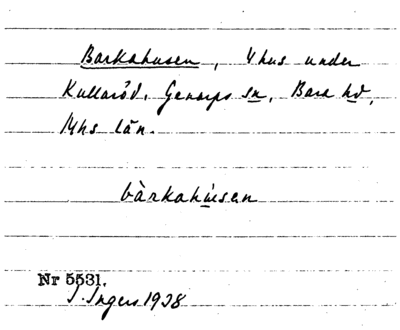 Barkahusen, 4 hus under
Kullaröd, Genarps sn, Bara hd,
Mhs län.
bàrkahúsen
Nr 5531.
I. Ingers 1928